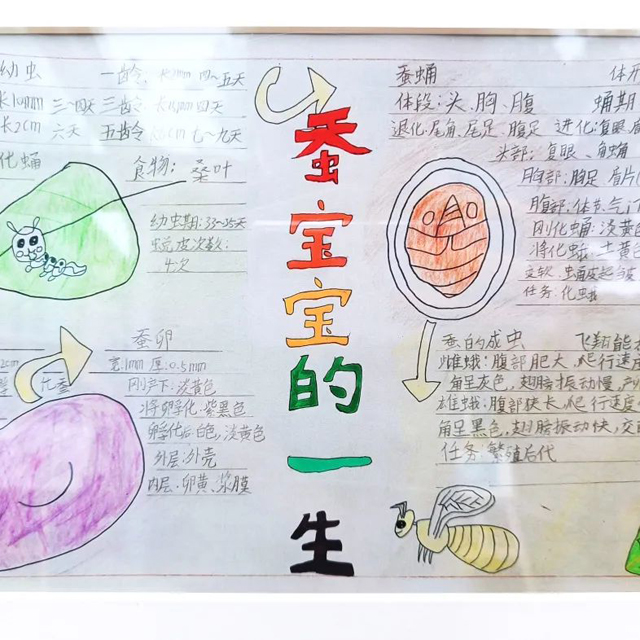 幼虫
一齿令 长2mm 四~五天
长10mm 三~四天 三齿令 长11mm 四天
长2cm 六天 五齿令 七~九天
化蛹 食物: 桑叶
幼虫期: 23~25天
蜕皮次数:
4次
蚕卵
宽:1mm 厚:0.5mm
刚产下:淡黄色
将卵孵化:紫黑色
孵化后:白色,淡黄色
外层:外壳
内层:卵黄、浆膜
蚕宝宝的一生
蚕蛹
体段:头、胸、腹 蛹期
退化:尾角、尾足、腹足 进化:复眼
头部:复眼、触角
胸部:胸足
腹部:体节,气门
刚化蛹:淡黄色
将化蛾:土黄色
任务:化蛾
蚕的成虫 飞翔能
雌蛾:腹部肥大,爬行速度
角呈灰色,翅膀振动慢,
雄蛾:腹部狭长,爬行速度
角呈黑色,翅膀振动快,交
任务:繁殖后代